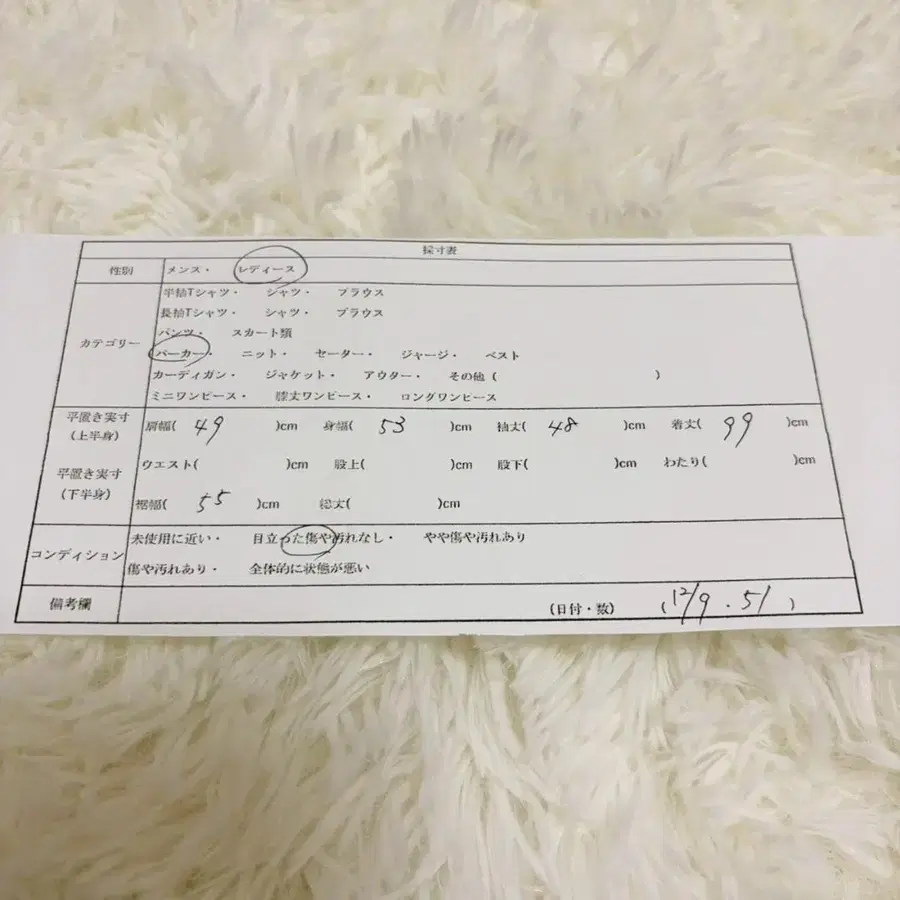 採寸表
性別 メンズ・ レディース
カテゴリー
半袖Tシャツ・ シャツ・ ブラウス
長袖Tシャツ・ シャツ・ ブラウス
パンツ・ スカート類
パーカー・ ニット・ セーター・ ジャージ・ ベスト
カーディガン・ ジャケット・ アウター・ その他( )
ミニワンピース・ 膝丈ワンピース・ ロングワンピース
平置き実寸(上半身) 肩幅( 49 )cm 身幅( 53 )cm 袖丈( 48 )cm 着丈( 99 )cm
平置き実寸(下半身) ウエスト( )cm 股上( )cm 股下( )cm わたり( )cm
裾幅( 55 )cm 総丈( )cm
コンディション
未使用に近い・ 目立った傷や汚れなし・ やや傷や汚れあり
傷や汚れあり・ 全体的に状態が悪い
備考欄 (日付・数) (12/9 . 51 )